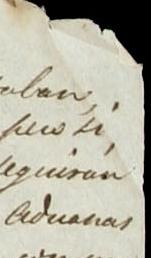 aban,
pero si,
seguiran
aduanas